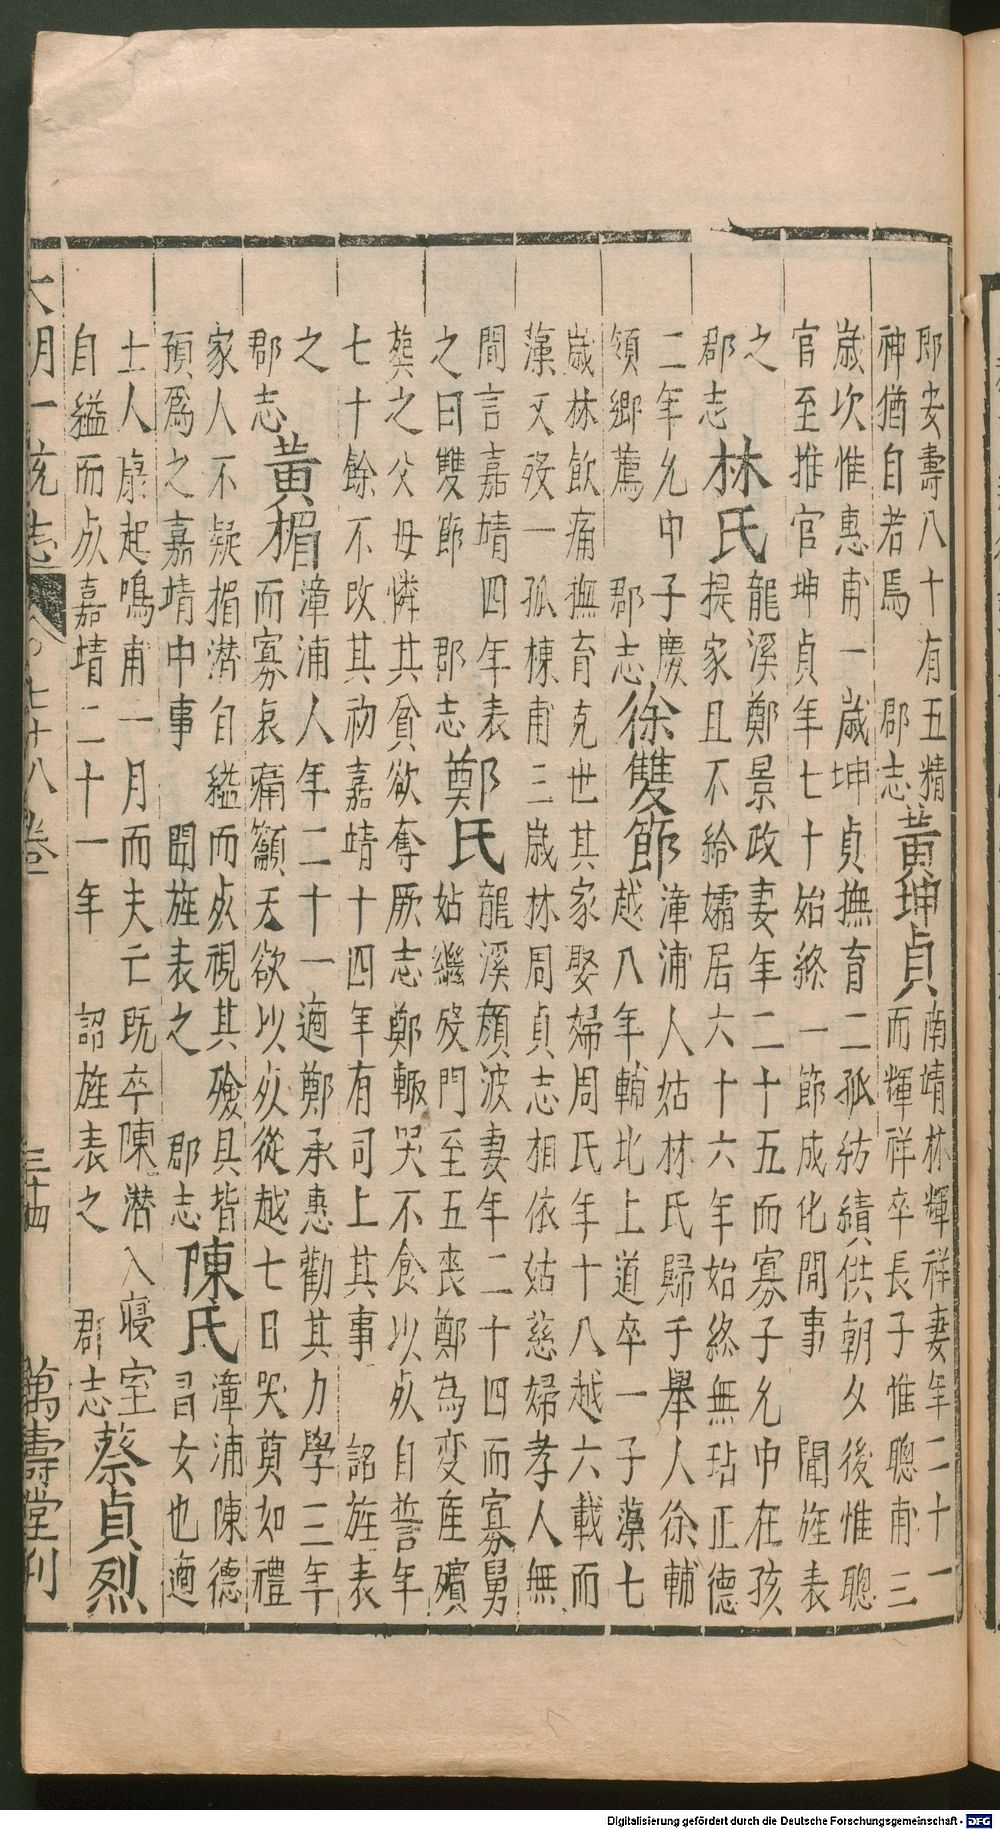 郎安壽八十有五精
神猶自若焉　郡志
黄坤貞
南靖林輝祥妻年二十一
而輝祥卒長子惟聰甫三
歲次惟惠甫一歲坤貞撫育二孤紡績供朝夕後惟聰
官至推官坤貞年七十始終一節成化間事　聞旌表
之
郡志
林氏
龍溪鄭景政妻年二十五而寡子允中在孩
提家且不給孀居六十六年始終無玷正德
二年允中子慶
領鄉薦　郡志
徐雙節
漳浦人姑林氏歸于舉人徐輔
越八年輔北上道卒一子藻七
歲林飲痛撫育克世其家娶婦周氏年十八越六載而
藻又歿一孤棟甫三歲林周貞志相依姑慈婦孝人無
間言嘉靖四年表
之曰雙節　郡志
鄭氏
龍溪顔波妻年二十四而寡舅
姑繼歿門至五喪鄭為変産殯
葬之父母憐其貧欲奪厥志鄭輙哭不食以死自誓年
七十餘不改其初嘉靖十四年有司上其事　詔旌表
之
郡志
黄楣
漳浦人年二十一適鄭承惠勸其力學三年
而寡哀痛籲天欲以死從越七日哭奠如禮
家人不疑楣潜自縊而死視其殮具皆
預爲之嘉靖中事　聞旌表之　郡志
陳氏
漳浦陳德
冐女也適
士人康起鳴甫一月而夫亡既卒陳潜入寝室
自縊而死嘉靖二十一年　詔旌表之　郡志
蔡貞烈
大明一統志　七十八卷　三十四　萬壽堂刊
Digitalisierung gefördert durch die Deutsche Forschungsgemeinschaft - DFG